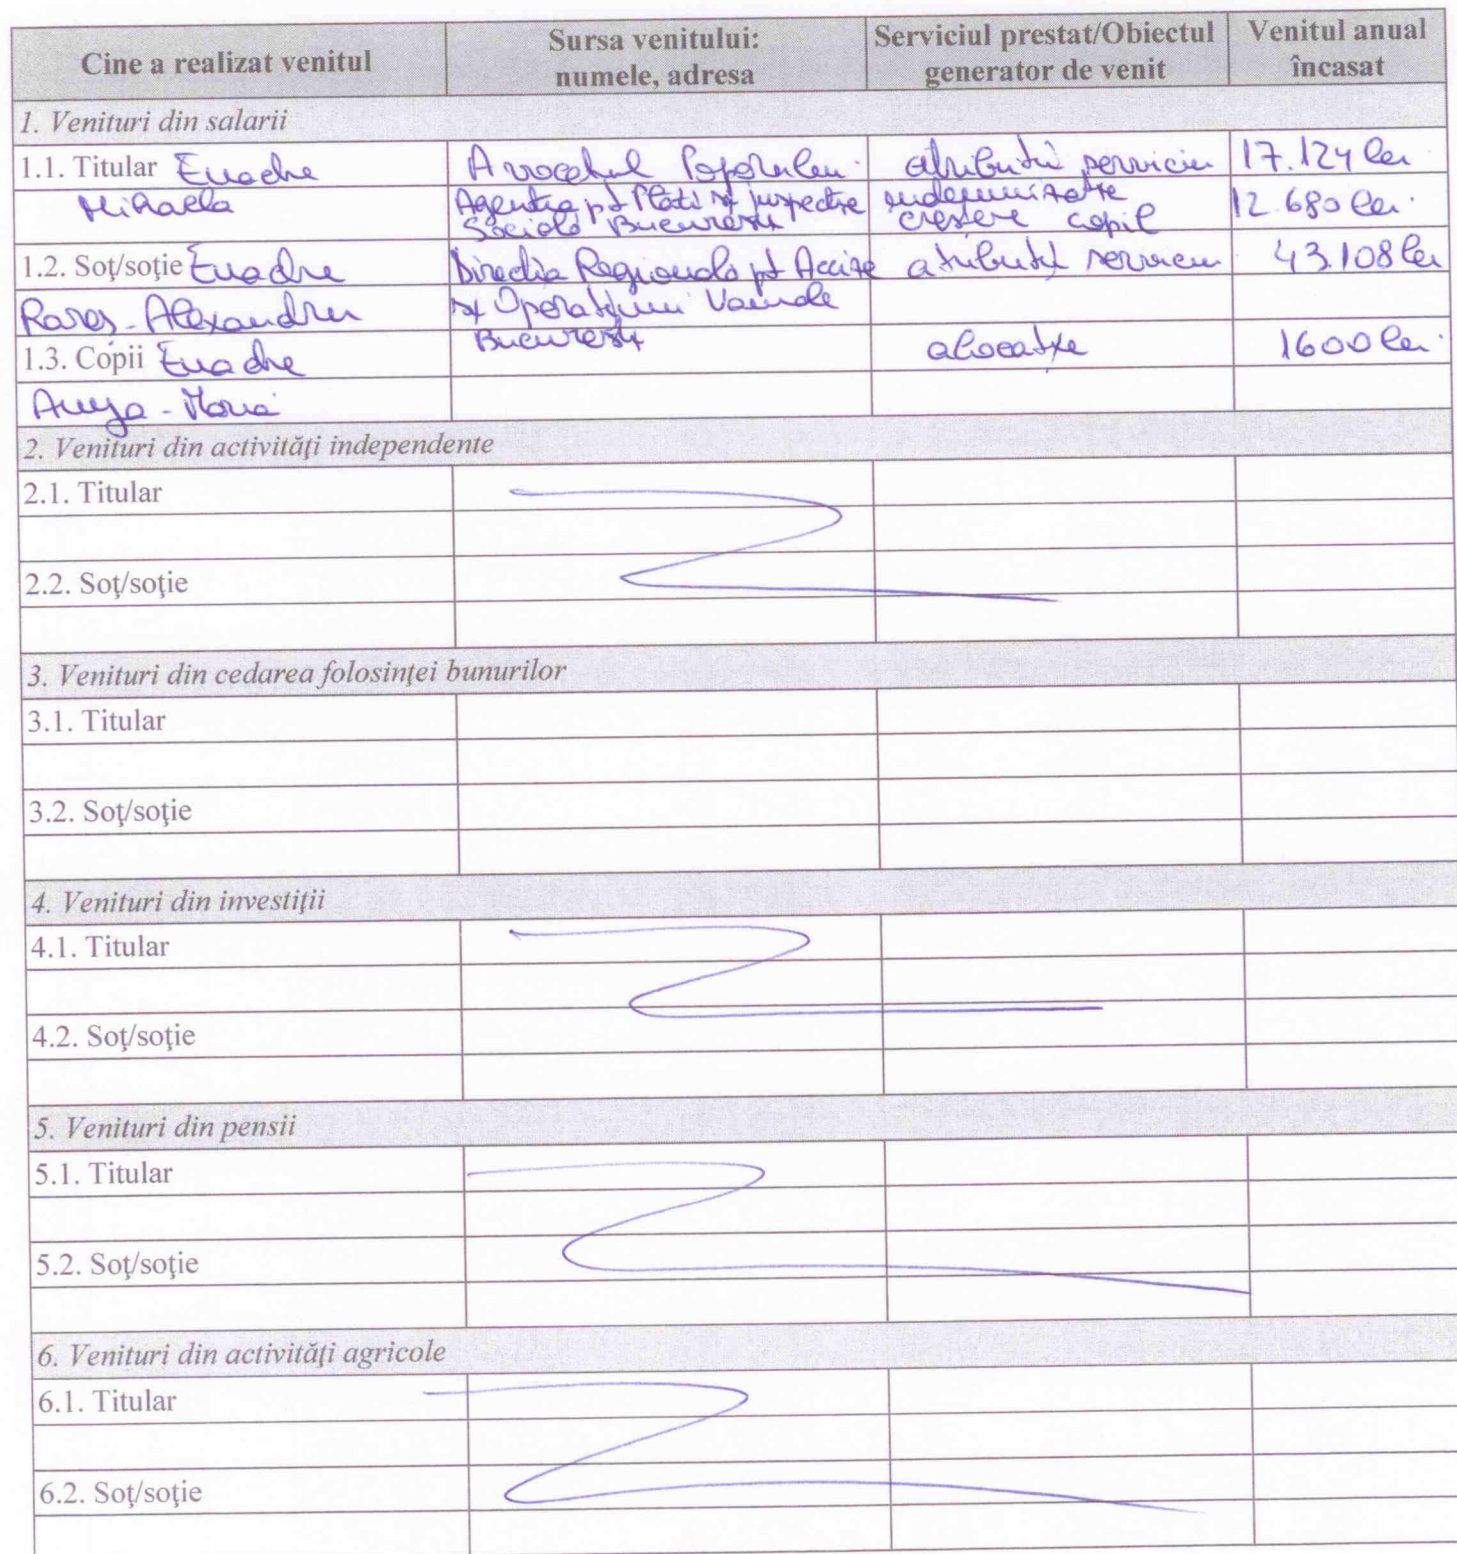 Cine a realizat venitul | Sursa venitului: numele, adresa | Serviciul prestat/Obiectul generator de venit | Venitul anual încasat
1. Venituri din salarii
1.1. Titular Enache | Avocatul Poporului | atributii serviciu | 17.124 lei
Mihaela | Agentia pt Plati si Inspectie Sociala Bucuresti | indemnizatie crestere copil | 12.680 lei
1.2. Soţ/soţie Enache | Directia Regionala pt Accize | atributii serviciu | 43.108 lei
Rares-Alexandru | si Operatiuni Vamale
1.3. Copii Enache | Bucuresti | alocatie | 1600 lei
Maria
2. Venituri din activităţi independente
2.1. Titular
2.2. Soţ/soţie
3. Venituri din cedarea folosinţei bunurilor
3.1. Titular
3.2. Soţ/soţie
4. Venituri din investiţii
4.1. Titular
4.2. Soţ/soţie
5. Venituri din pensii
5.1. Titular
5.2. Soţ/soţie
6. Venituri din activităţi agricole
6.1. Titular
6.2. Soţ/soţie